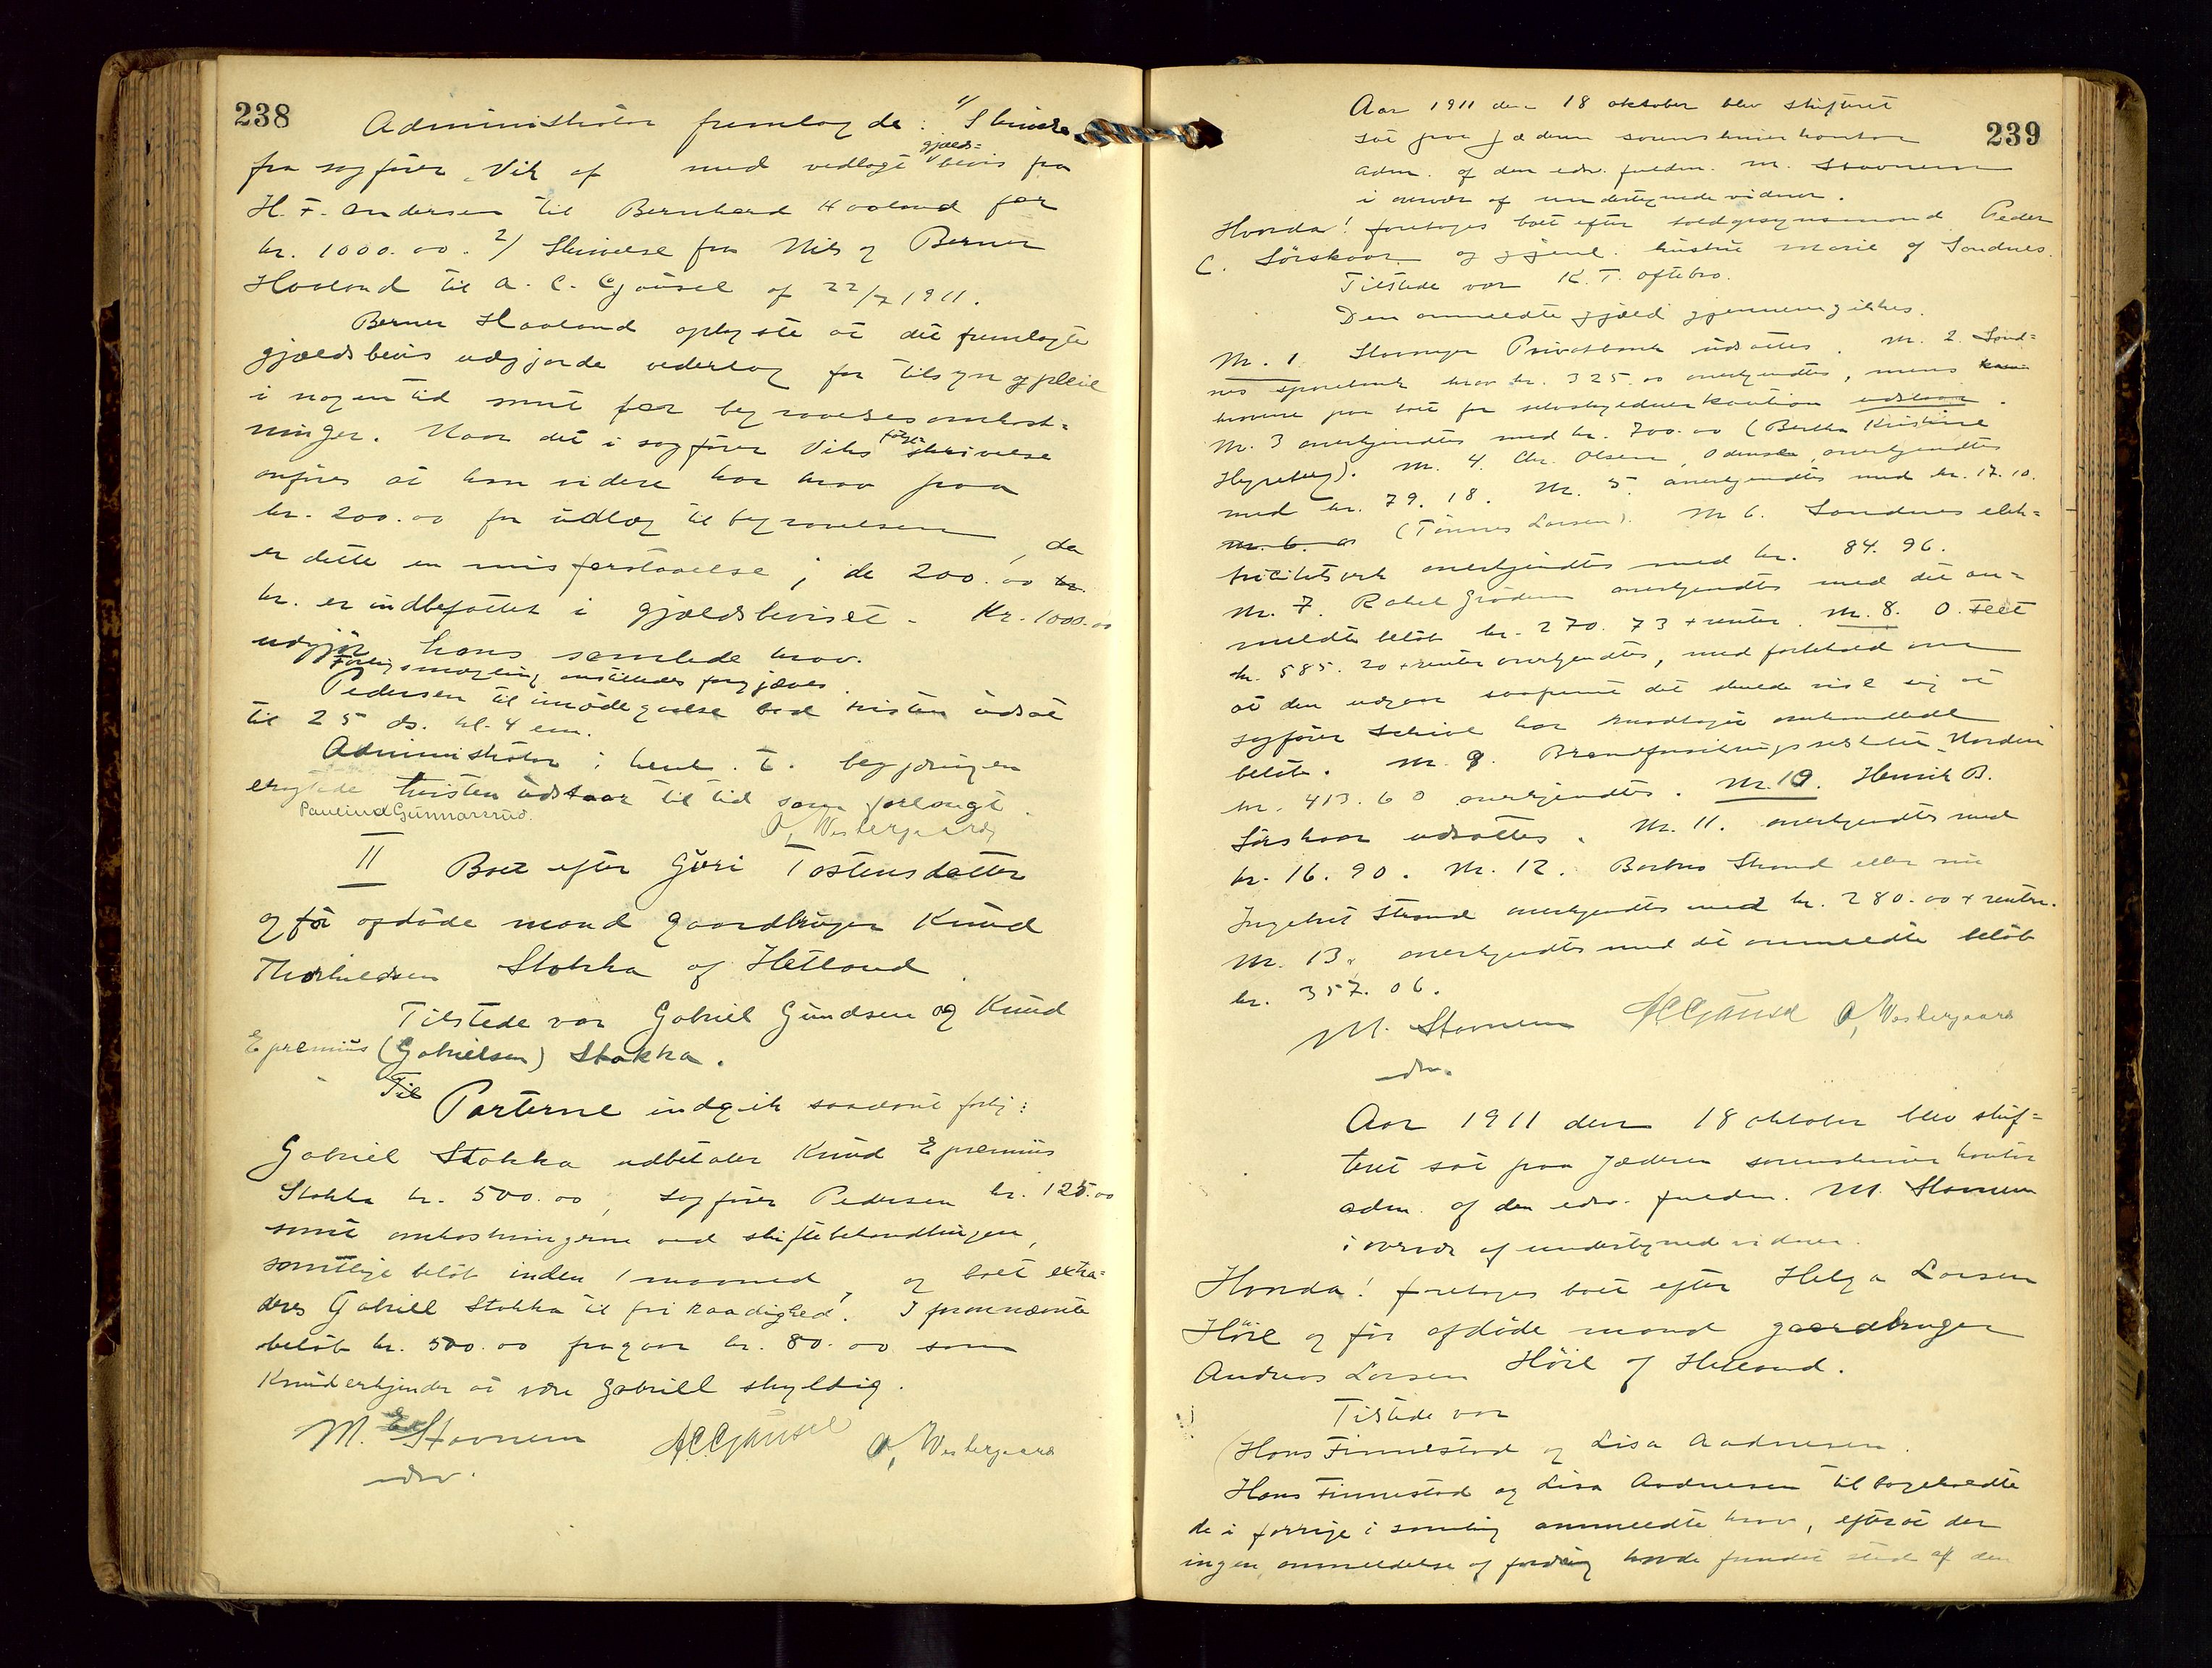 238
Administrator fremlagde: 1/ Skrivelse
gjelds=
fra sagfører Vik af med vedlagt bevis fra
H. F. Andersen til Bernhard Haaland for
kr. 1000.00. 2/ Skrivelse fra Nils og Berner
Haaland til A. C. Gjausel af 22/7 1911.
Berner Haaland oplyste at det fremlagte
gjældsbevis udgjorde vederlag for tilsyn og pleie
i nogen tid samt for begravelsesomkost=
ninger. Naar det i sagfører Viks skrivelse
anføres at han videre har krav paa
kr. 200.00 for udlæg til begravelsen, da
er dette en misforstaaelse; de 200.00 kr.
kr. er indbefattet i gjældsbeviset. Kr. 1000.00
udgjør hans samlede krav.
Forligsmægling anstilledes forgjæves.
Pedersen til imødegaaelse bad tvisten udsat
til 25 ds. kl. 4 em.
Administrator i henh. t. begjæringen
eragtede tvisten udstaar til tid som forlangt.
Paulind Gunnarsrud. O. Westergaard
II Boet efter Guri Tostensdatter
og før afdøde mand gaardbruger Knud
Thorkildsen Stokka af Hetland.
Tilstede var Gabriel Gundsen og Knud
Epremius (Gabrielsen) Stokka.
Til Parterne indgik saadant forlig:
Gabriel Stokka udbetaler Knud Epremius
Stokka kr. 500.00, sagfører Pedersen kr. 125.00
samt omkostningerne ved skiftebehandlingen,
samtlige beløb inden 1 maaned, og boet extra=
deres Gabriel Stokka til fri raadighed. I foran nævnte
beløb kr. 500.00 fragaar kr. 80.00 som
Knud erkjender at være Gabriel skyldig.
M. E Stavnem ACGjausel O. Westergaard
edsv.
239
Aar 1911 den 18 oktober blev skifteret
sat paa Jædern sorenskriverkontor
adm. af den edsv. fuldm. M. Stavnem
i overvær af undertegnede vidner.
Hvorda! foretages boet efter toldopsynsmand Peder
C. Sørskaar og gjenl. hustru Marie af Sandnes.
Tilstede var K. T. Oftebro.
Den anmeldte gjæld gjennemgikkes.
Nr. 1 Stavanger Privatbank udsattes. Nr. 2. Sand=
nes sparebank krav kr. 325.00 anerkjendtes, mens
kravene paa boet for selvskyldnerkaution udstaar.
Nr. 3 anerkjendtes med kr. 700.00 (Bertha Kristine
Høyreberg). Nr. 4. Chr. Olsen, Odense, anerkjendtes
med kr. 79.18. Nr. 5. anerkjendtes med kr. 17.10.
Nr. 6. (Tønnes Larsen). Nr 6. Sandnes elek=
tricitetsverk anerkjendtes med kr. 84.96.
Nr. 7. Rakel Grødem anerkjendtes med det an=
meldte beløb kr. 270.73 + renter. Nr. 8. O. Fleet
kr. 585.20 + renter anerkjendtes, med forbehold om
at den udgaar saafremt det skulde vise sig at
sagfører Schive har modtaget omhandlede
beløb. Nr. 9. Brandforsikringsselskabet Norden
kr. 413.60 anerkjendtes. Nr. 10. Henrik B.
Sørskaar udsattes. Nr. 11. anerkjendtes med
kr. 16.90. Nr. 12. Barbro Strand eller nu
Ingebret Strand anerkjendtes med kr. 280.00 + renter.
Nr. 13. anerkjendtes med det anmeldte beløb
kr. 357.06.
M. Stavnem ACGjausel O. Westergaard
edsv.
Aar 1911 den 18 oktober blev skif=
teret sat paa Jædern sorenskriverkontor
adm. af den edsv. fuldm. M. Stavnem
i overvær af undertegnede vidner.
Hvorda! foretages boet efter Helga Larsen
Høie og før afdøde mand gaardbruger
Andreas Larsen Høie af Hetland.
Tilstede var
Hans Finnestad og Lisa Aadnesen.
Hans Finnestad og Lisa Aadnesen tilbagekaldte
de i forrige samling anmeldte krav, efter at der
ingen anmeldelse af fordring havde fundet sted af den